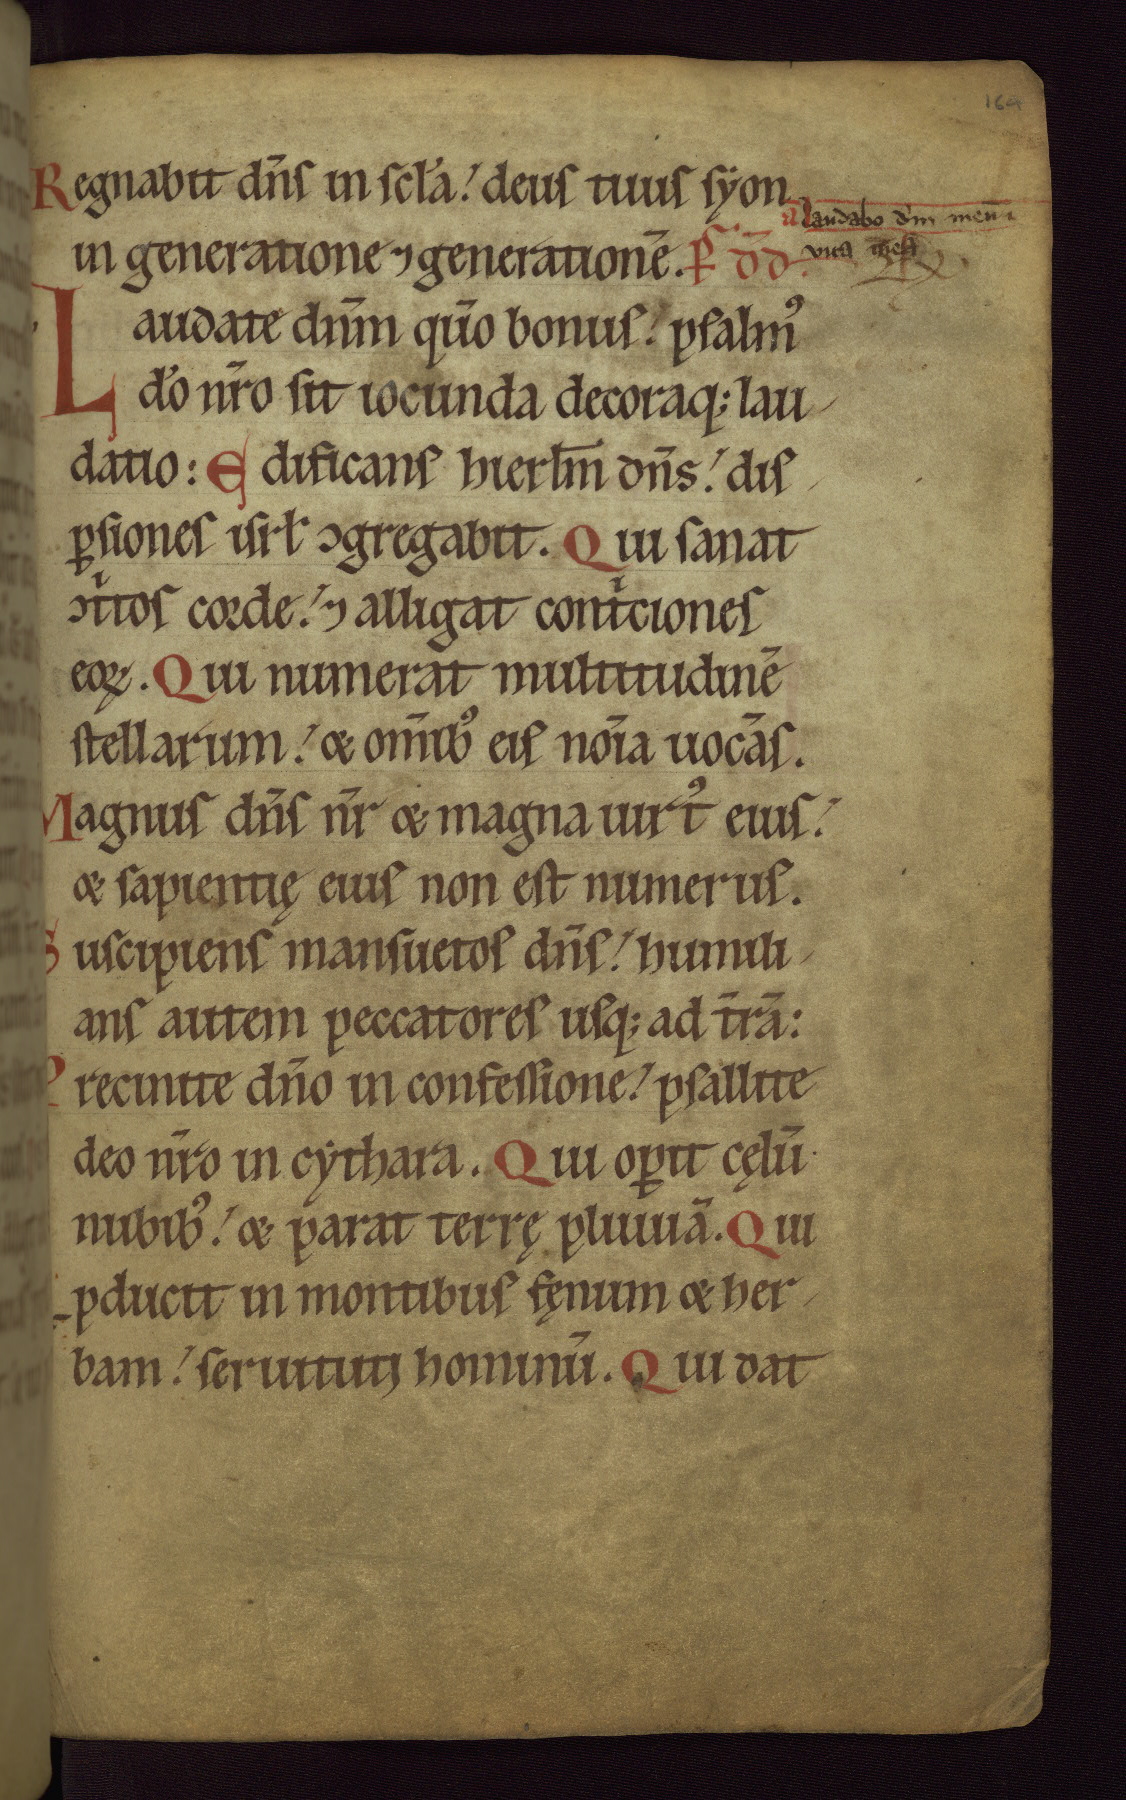 169
Regnabit dn̄s in scl̓a! deus tuus syon
a laudabo d̄m meū ī
in generatione ⁊ generationē. Ps̄ D̄D̄.
vita mea
Laudate dn̄m qūo bonus! psalmꝰ
d̓o nr̄o sit iocunda decoraq; lau-
datio: Edificans hierl̄m dn̄s! dis-
ꝑsiones isrł ↄgregabit. Qui sanat
ↄtⁱtos corde! ⁊ alligat contⁱciones
eoꝝ. Qui numerat multitudinē
stellarum! & om̄ibꝰ eis nōia uocās.
Magnus dn̄s nr̄ & magna uirtꝰ eius!
& sapientię eius non est numerus.
Suscipiens mansuetos dn̄s! humili-
ans autem peccatores usq; ad t̄rā:
Precinite dn̄o in confessione! psallite
deo nr̄o in cythara. Qui oꝑit cęlū
nubibꝰ! & parat terrę pluuiā. Qui
ꝓducit in montibus fęnum & her-
bam! seruituti hominū. Qui dat